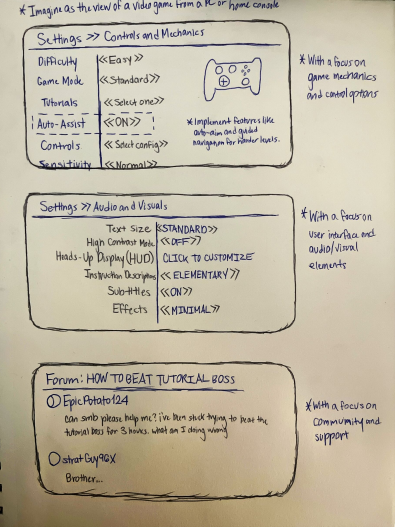 * Imagine as the view of a video game from a PC or home console
Settings >> Controls and Mechanics
Difficulty <<Easy>>
Game Mode <<Standard>>
Tutorials <<Select one>>
Auto-Assist <<ON>>
Controls <<Select config>>
Sensitivity <<Normal>>
* Implement features like
auto-aim and guided
navigation for harder levels.
* With a focus on
game mechanics
and control options
Settings >> Audio and Visuals
Text Size <<STANDARD>>
High Contrast Mode <<OFF>>
Heads-Up Display (HUD) CLICK TO CUSTOMIZE
Instruction Descriptions <<ELEMENTARY>>
Subtitles <<ON>>
Effects <<MINIMAL>>
* With a focus on
user interface and
audio/visual
elements
Forum: HOW TO BEAT TUTORIAL BOSS
EpicPotato124
can smb please help me? i've been stuck trying to beat the
tutorial boss for 3 hours. what am I doing wrong
stratGuy96X
Brother...
* With a focus on
community and
support